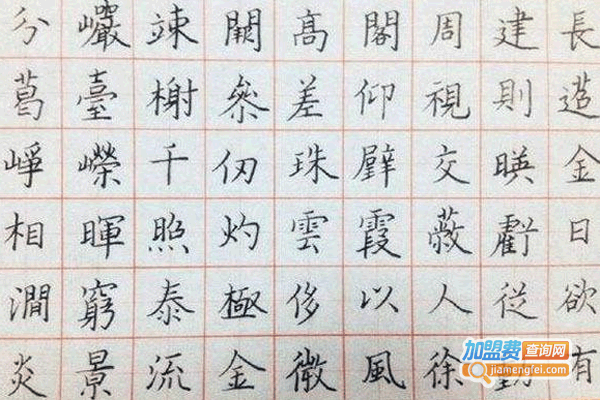 分巗竦闕髙閣周建長
葛臺榭叅差仰視則迢
崢嶸千仞珠璧交暎金
相暉照灼雲霞蔽虧日
澗窮泰極侈以人從欲
炎景流金微風徐動有
加盟费查询网
jiamengfei.com